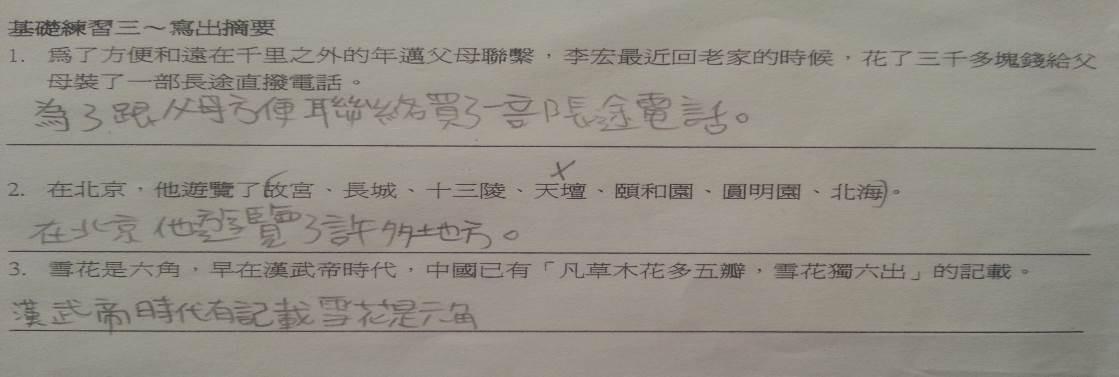 基礎練習三～寫出摘要
1. 爲了方便和遠在千里之外的年邁父母聯繫，李宏最近回老家的時候，花了三千多塊錢給父
母裝了一部長途直撥電話。
為了跟父母方便聯絡買了一部長途電話。
2. 在北京，他遊覽了故宮、長城、十三陵、天壇、頤和園、圓明園、北海。
在北京他遊覽了許多地方。
3. 雪花是六角，早在漢武帝時代，中國已有「凡草木花多五瓣，雪花獨六出」的記載。
漢武帝時代有記載雪花是六角